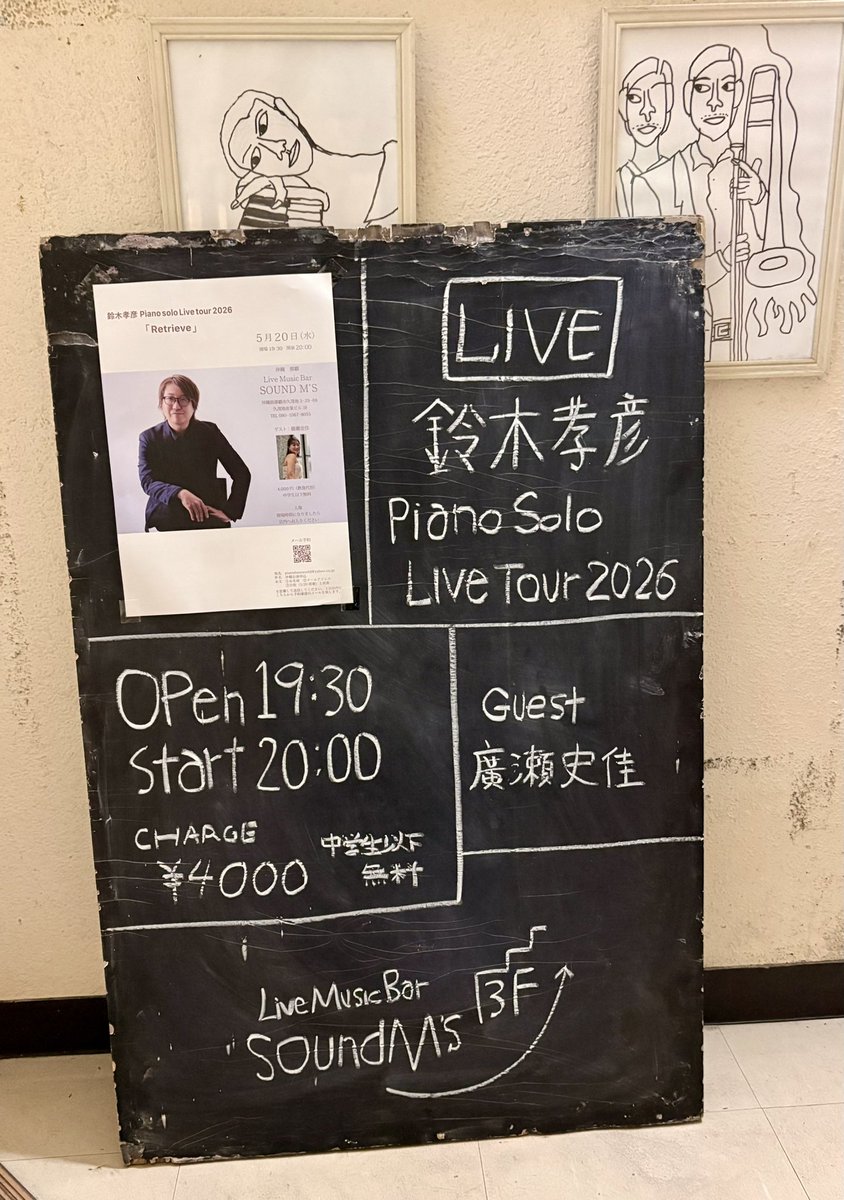 鈴木孝彦 Piano solo Live tour 2026
「Retrieve」
5月20日(水)
開場 19:30 開演 20:00
沖縄 那覇
Live Music Bar
SOUND M'S
ゲスト 廣瀬史佳
4,000円
中学生以下無料
メール予約
LIVE
鈴木孝彦
Piano Solo
LIVE TOUR 2026
OPen 19:30
Start 20:00
CHARGE
¥4000
中学生以下
無料
Guest
廣瀬史佳
Live Music Bar
SOUndM's
3F